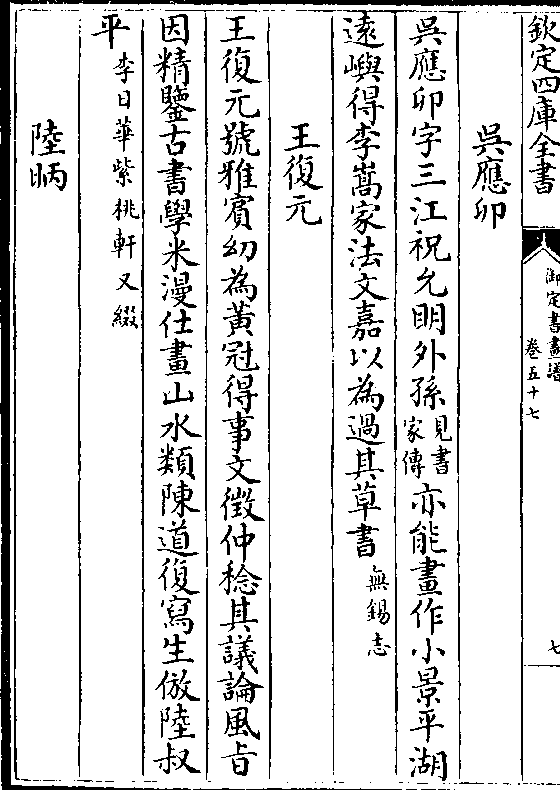 欽定四庫全書
御定書畫譜
卷五十七
七
吳應卯
吳應卯字三江祝允明外孫見書家傳亦能畫作小景平湖
遠嶼得李嵩家法文嘉以為過其草書無錫志
王復元
王復元號雅賓幼為黃冠得事文徵仲稔其議論風旨
因精鑒古書學米漫仕畫山水類陳道復寫生倣陸叔
平李日華紫桃軒又綴
陸昞